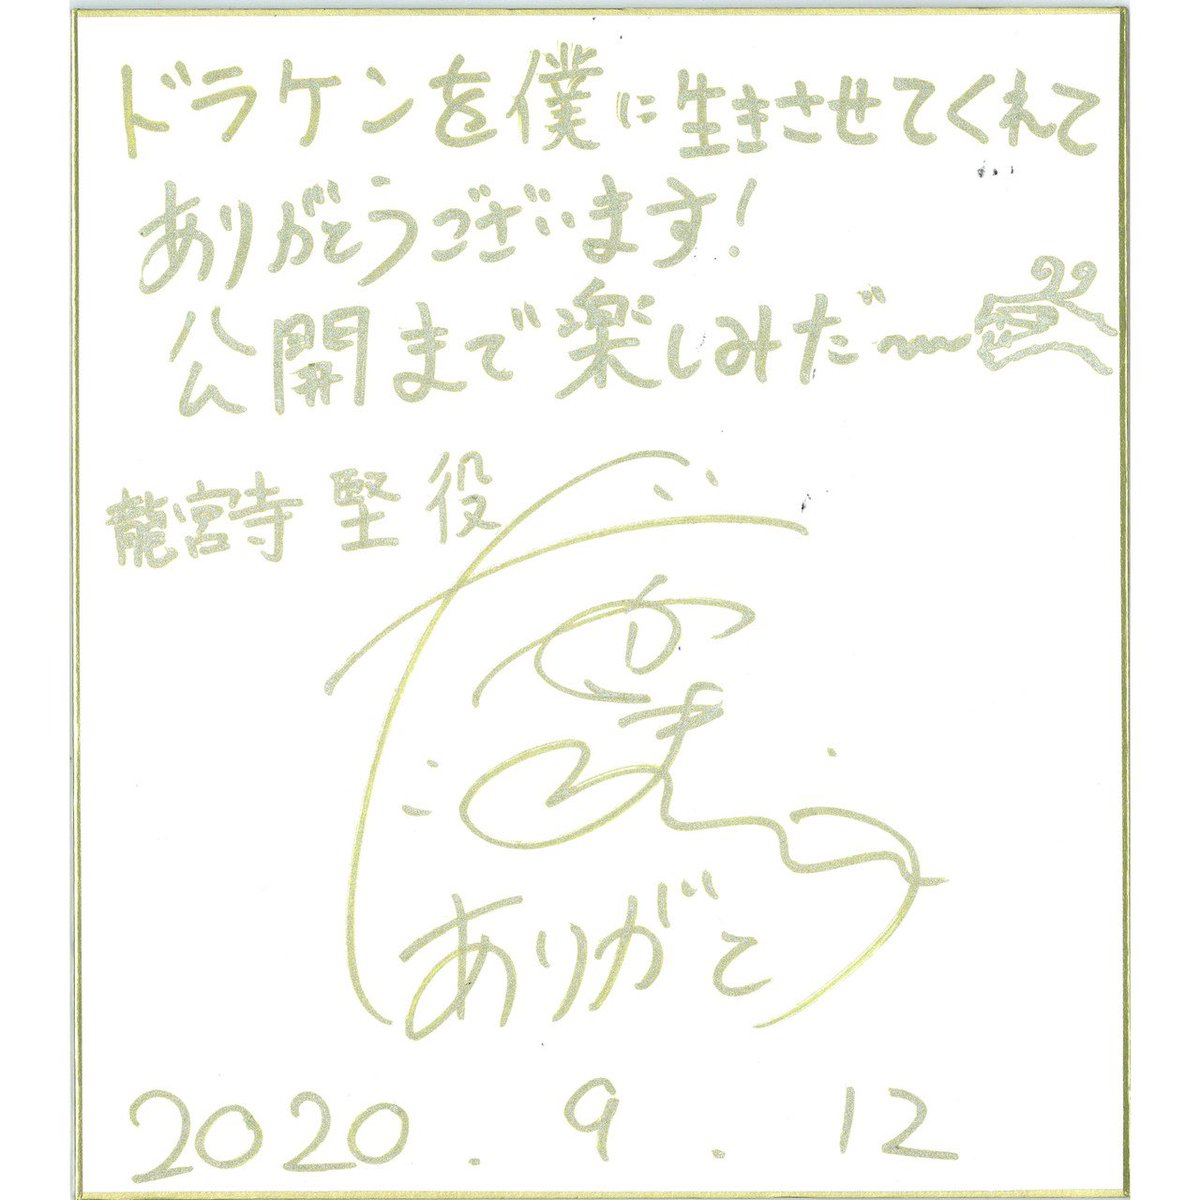 ドラケンを僕に生きさせてくれて
ありがとうございます!
公開まで楽しみだ〜
龍宮寺 堅 役
ありがと
2020.9.12